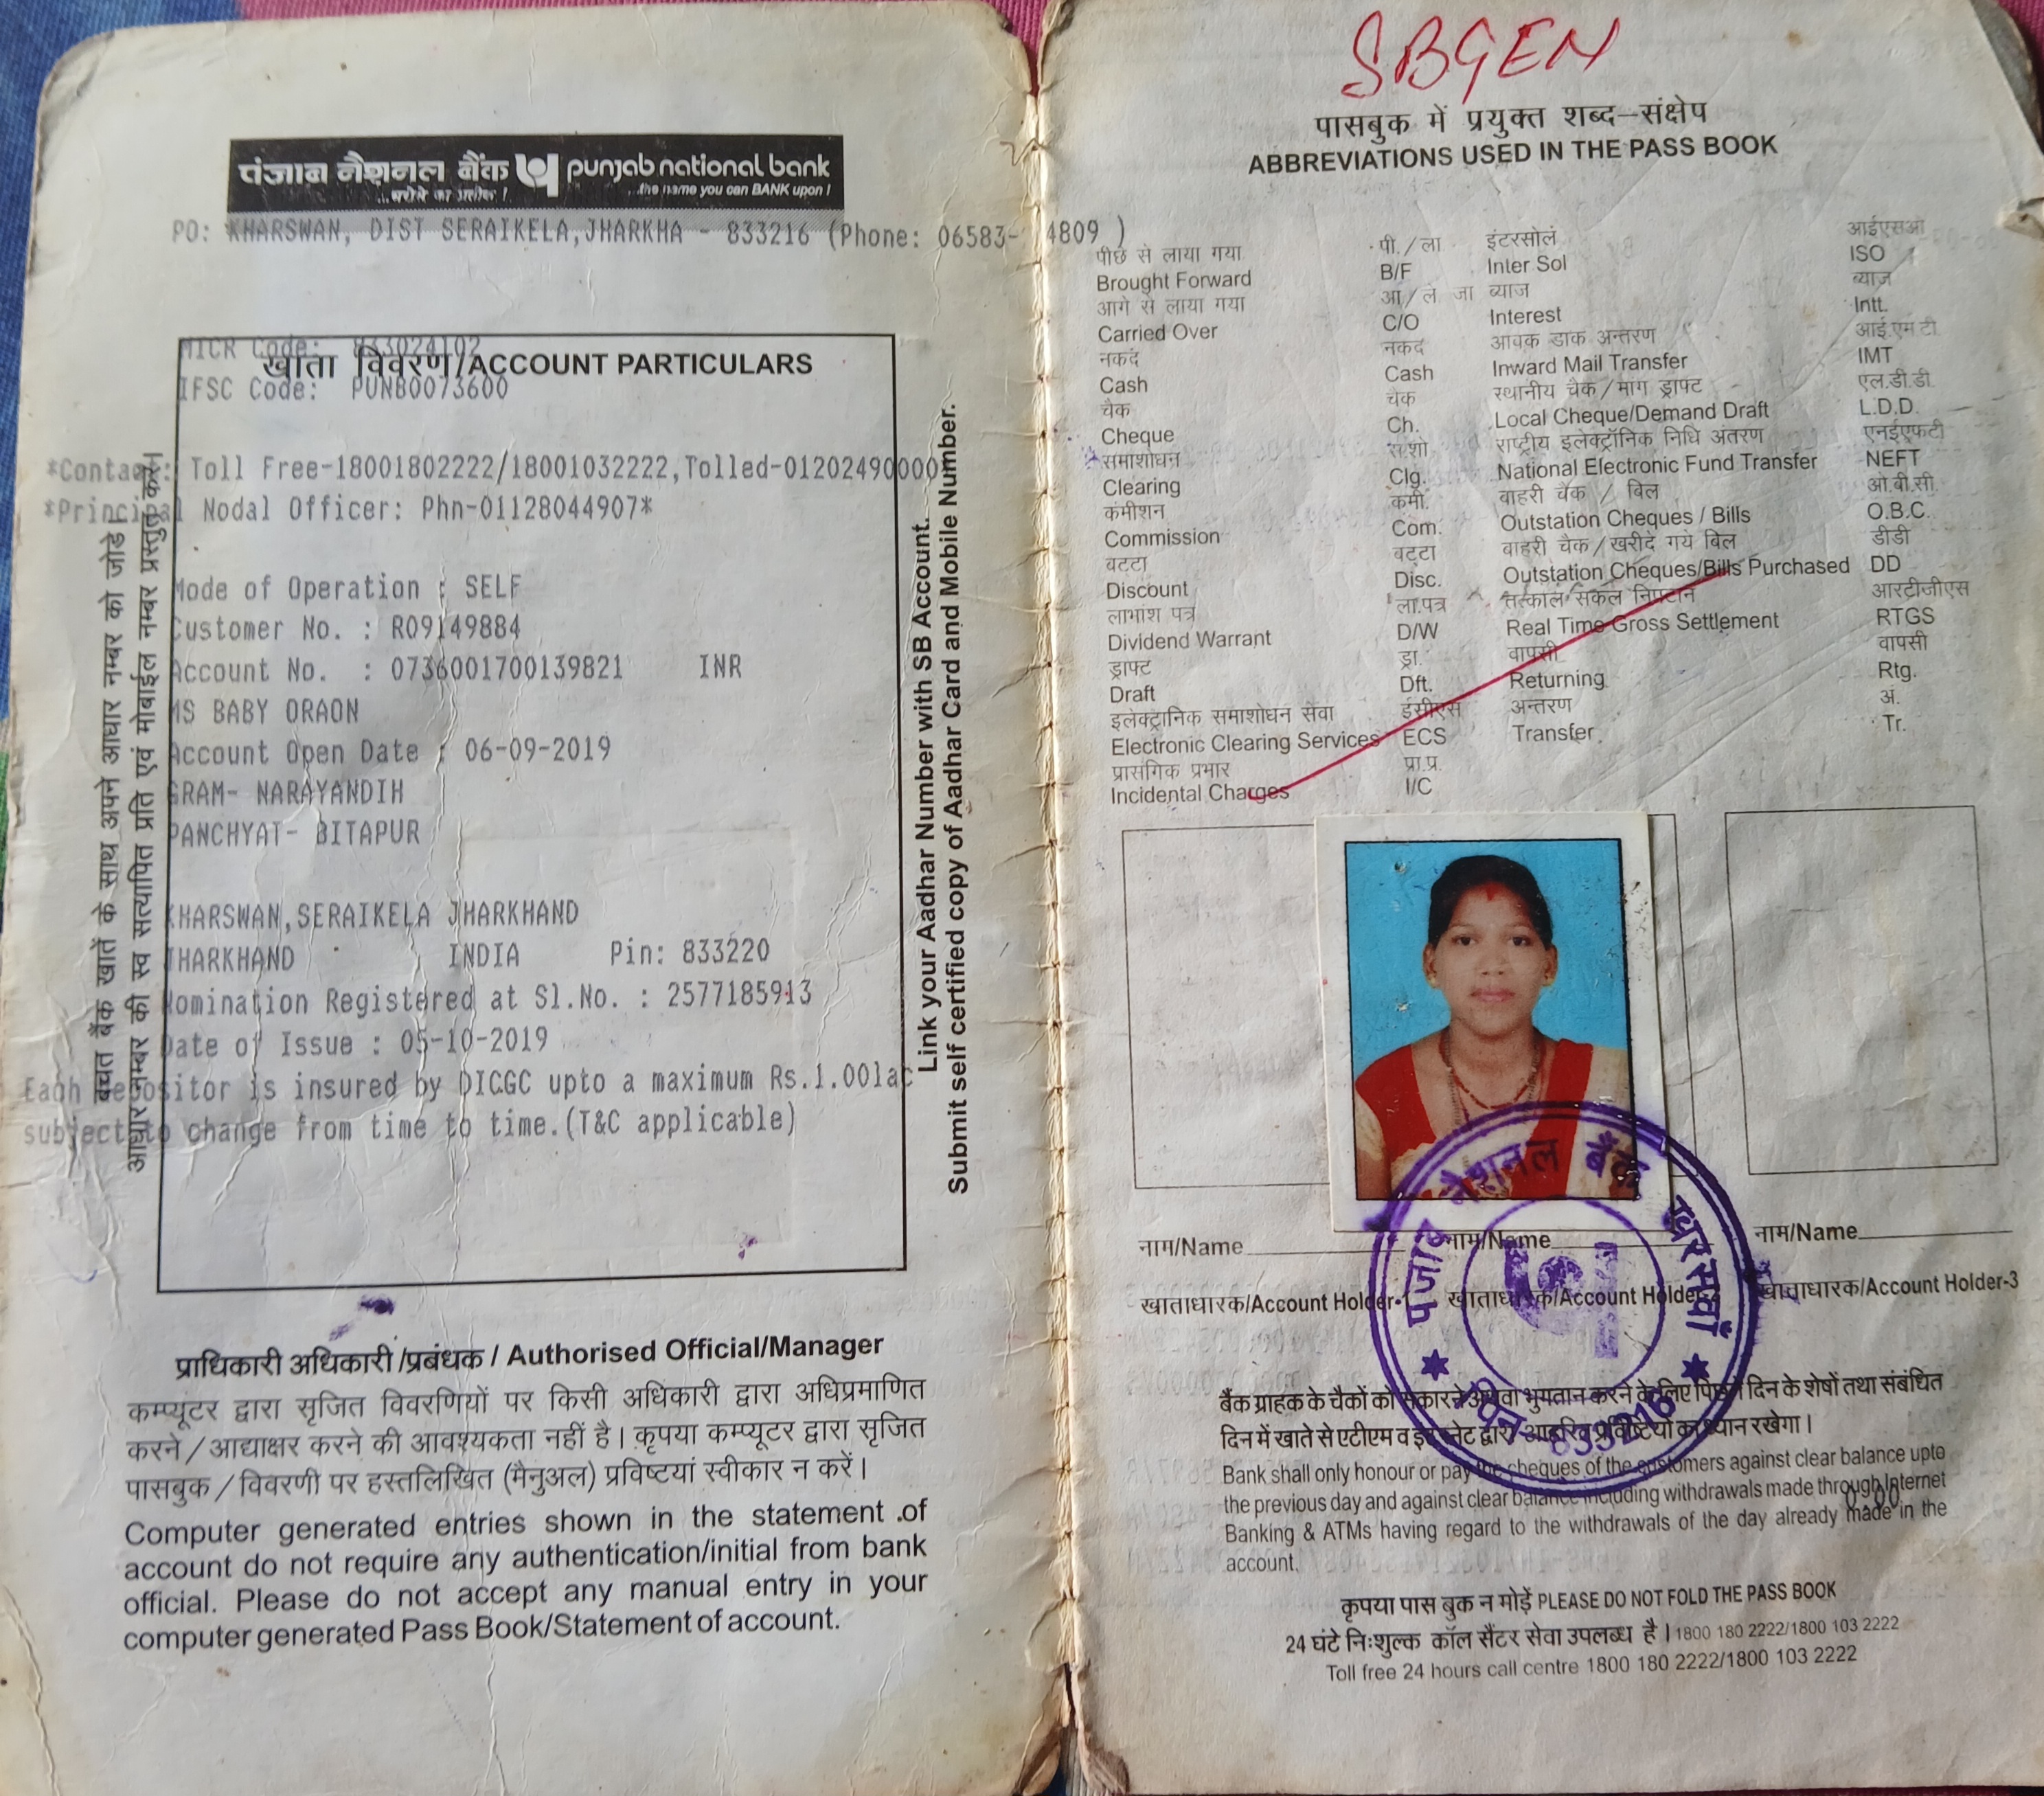 पंजाब नैशनल बैंक punjab national bank
...भरोसे का प्रतीक ! ...the name you can BANK upon !
PO: KHARSWAN, DIST SERAIKELA,JHARKHA - 833216 (Phone: 06583- 4809 )
MICR Code: 833024102
खाता विवरण/ACCOUNT PARTICULARS
IFSC Code: PUNB0073600
*Contact: Toll Free-18001802222/18001032222,Tolled-01202490000
*Principal Nodal Officer: Phn-01128044907*
Mode of Operation : SELF
Customer No. : R09149884
Account No. : 0736001700139821 INR
MS BABY ORAON
Account Open Date : 06-09-2019
GRAM- NARAYANDIH
PANCHYAT- BITAPUR
KHARSWAN,SERAIKELA JHARKHAND
JHARKHAND INDIA Pin: 833220
Nomination Registered at Sl.No. : 2577185913
Date of Issue : 05-10-2019
Each depositor is insured by DICGC upto a maximum Rs.1.00lac
subject to change from time to time.(T&C applicable)
बचत बैंक खातें के साथ अपने आधार नम्बर को जोडें।
आधार नम्बर की स्व सत्यापित प्रति एवं मोबाईल नम्बर प्रस्तुत करें।
Link your Aadhar Number with SB Account.
Submit self certified copy of Aadhar Card and Mobile Number.
प्राधिकारी अधिकारी /प्रबंधक / Authorised Official/Manager
कम्प्यूटर द्वारा सृजित विवरणियों पर किसी अधिकारी द्वारा अधिप्रमाणित
करने / आद्याक्षर करने की आवश्यकता नहीं है। कृपया कम्प्यूटर द्वारा सृजित
पासबुक / विवरणी पर हस्तलिखित (मैनुअल) प्रविष्टियां स्वीकार न करें।
Computer generated entries shown in the statement of
account do not require any authentication/initial from bank
official. Please do not accept any manual entry in your
computer generated Pass Book/Statement of account.
SBGEN
पासबुक में प्रयुक्त शब्द-संक्षेप
ABBREVIATIONS USED IN THE PASS BOOK
पीछे से लाया गया पी./ला इंटरसोल आईएसओ
Brought Forward B/F Inter Sol ISO
आगे से लाया गया आ/ले जा ब्याज ब्याज
Carried Over C/O Interest Intt.
नकद नकद आवक डाक अन्तरण आई.एम टी
Cash Cash Inward Mail Transfer IMT
चैक चैक स्थानीय चैक/मांग ड्राफ्ट एल.डी.डी.
Cheque Ch. Local Cheque/Demand Draft L.D.D.
समाशोधन स.शो राष्ट्रीय इलेक्ट्रॉनिक निधि अंतरण एनईएफटी
Clearing Clg. National Electronic Fund Transfer NEFT
कमीशन कमी. बाहरी चैक / बिल ओ.बी.सी.
Commission Com. Outstation Cheques / Bills O.B.C.
बटटा बटटा बाहरी चैक/खरीदे गये बिल डीडी
Discount Disc. Outstation Cheques/Bills Purchased DD
लाभांश पत्र ला.पत्र तत्काल सकल निपटान आरटीजीएस
Dividend Warrant D/W Real Time Gross Settlement RTGS
ड्राफ्ट ड्रा. वापसी वापसी
Draft Dft. Returning Rtg.
इलेक्ट्रानिक समाशोधन सेवा ईसीएस अन्तरण अं.
Electronic Clearing Services ECS Transfer Tr.
प्रासंगिक प्रभार प्रा.प्र.
Incidental Charges I/C
नाम/Name नाम/Name नाम/Name
खाताधारक/Account Holder-1 खाताधारक/Account Holder-2 खाताधारक/Account Holder-3
पंजाब नैशनल बैंक खरसवाँ
पिन- 833216
बैंक ग्राहक के चैकों को सकारने अथवा भुगतान करने के लिए पिछले दिन के शेषों तथा संबंधित
दिन में खाते से एटीएम व इंटरनेट द्वारा आहरित प्रविष्टियों का ध्यान रखेगा।
Bank shall only honour or pay the cheques of the customers against clear balance upto
the previous day and against clear balance including withdrawals made through Internet
0.00
Banking & ATMs having regard to the withdrawals of the day already made in the
account.
कृपया पास बुक न मोड़ें PLEASE DO NOT FOLD THE PASS BOOK
24 घंटे निःशुल्क कॉल सैंटर सेवा उपलब्ध है। 1800 180 2222/1800 103 2222
Toll free 24 hours call centre 1800 180 2222/1800 103 2222